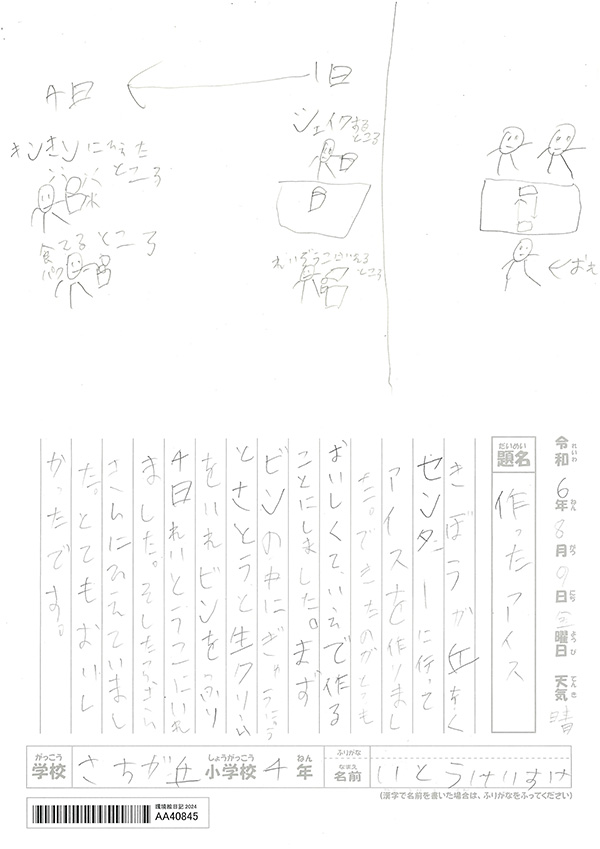 1日
4日
シェイクする
ところ
れいぞうこにいれる
ところ
キンキンにひえた
ところ
食べてるところ
パク
令和6年8月9日金曜日 天気 晴
れいわ ねん がつ にち ようび てんき
だいめい
題名 作ったアイス
きぼうが丘をく
センターに行って
アイスを作りまし
た。できたのがとても
おいしくて、いえで作る
ことにしました。まず
ビンの中にぎゅうにゅう
とさとうと生クリーム
をいれビンをふり
4日れいとうこにいれ
ました。そしたらきん
きんにひえていまし
た。とてもおいし
かったです。
がっこう しょうがっこう ねん ふりがな
学校 さちが丘 小学校 4年
なまえ
名前 いとうけいすけ
(漢字で名前を書いた場合は、ふりがなをふってください)
環境絵日記2024
AA40845